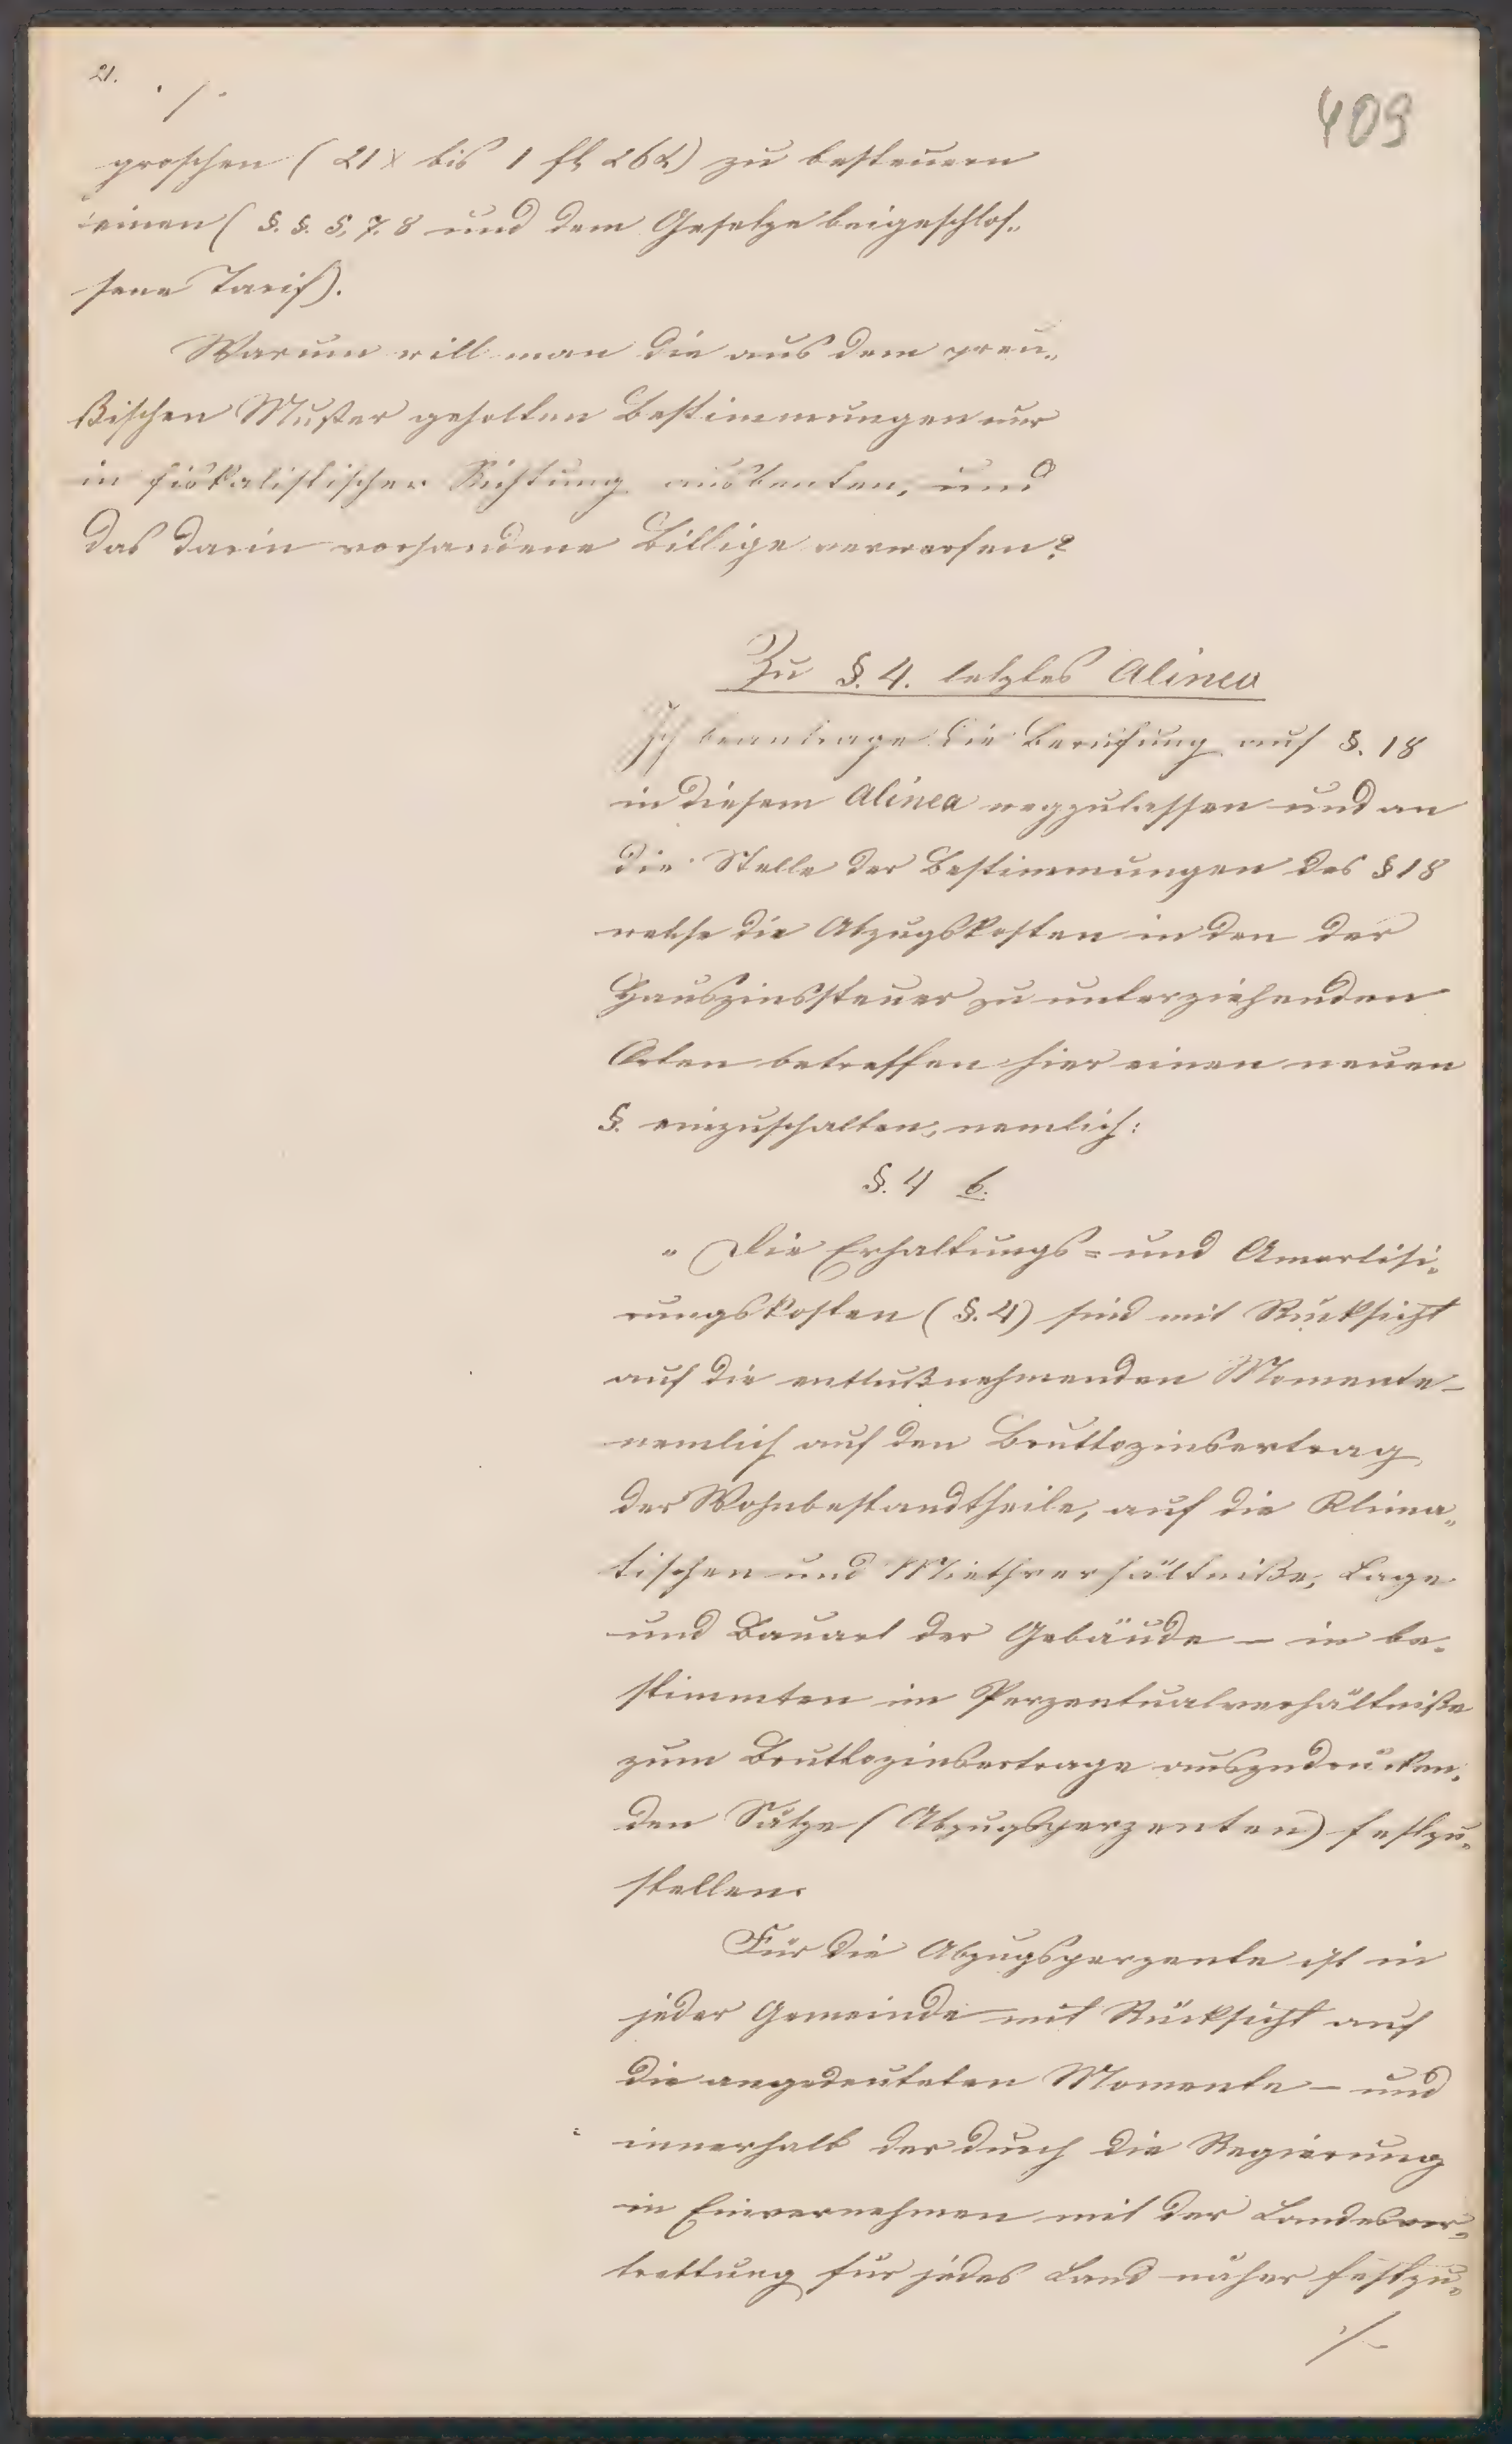 21.
./.
409
groschen (21 x bis 1 fl 26x) zu besteuern
seinen (§. §. 5, 7. 8 und dem Gesetze beigeschlos„
sene Tarif).
Warum will man die aus dem preu„
ßischen Muster geholten Bestimmungen nur
in fiskalistischer Richtung ausbeuten, und
das darin vorhandene Billige verwerfen?
Zu §. 4. letztes Alinea
Ich beantrage die Berufung auf §. 18
in diesem Alinea wegzulassen und an
die Stelle der Bestimmungen des § 18
welche die Abzugskosten in den der
Hauszinssteuer zu unterziehenden
Orten betreffen hier einen neuen
§. einzuschalten, nemlich:
§. 4 b.
„ Die Erhaltungs= und Amortisi„
rungskosten (§. 4) sind mit Rücksicht
auf die einflußnehmenden Momente –
nemlich auf den Bruttozinsertrag
der Wohnbestandtheile, auf die klima„
tischen und Miethverhältniße, Lage
und Bauart der Gebäude – in be„
stimmten im Perzentualverhältniße
zum Bruttozinsertrage auszudrücken„
den Sätze (Abzugsperzenten) festzu„
stellen.
Für die Abzugsperzente ist in
jeder Gemeinde mit Rücksicht auf
die angedeuteten Momente – und
innerhalb der durch die Regierung
in Einvernehmen mit der Landesver„
trettung für jedes Land näher festzu„
./.